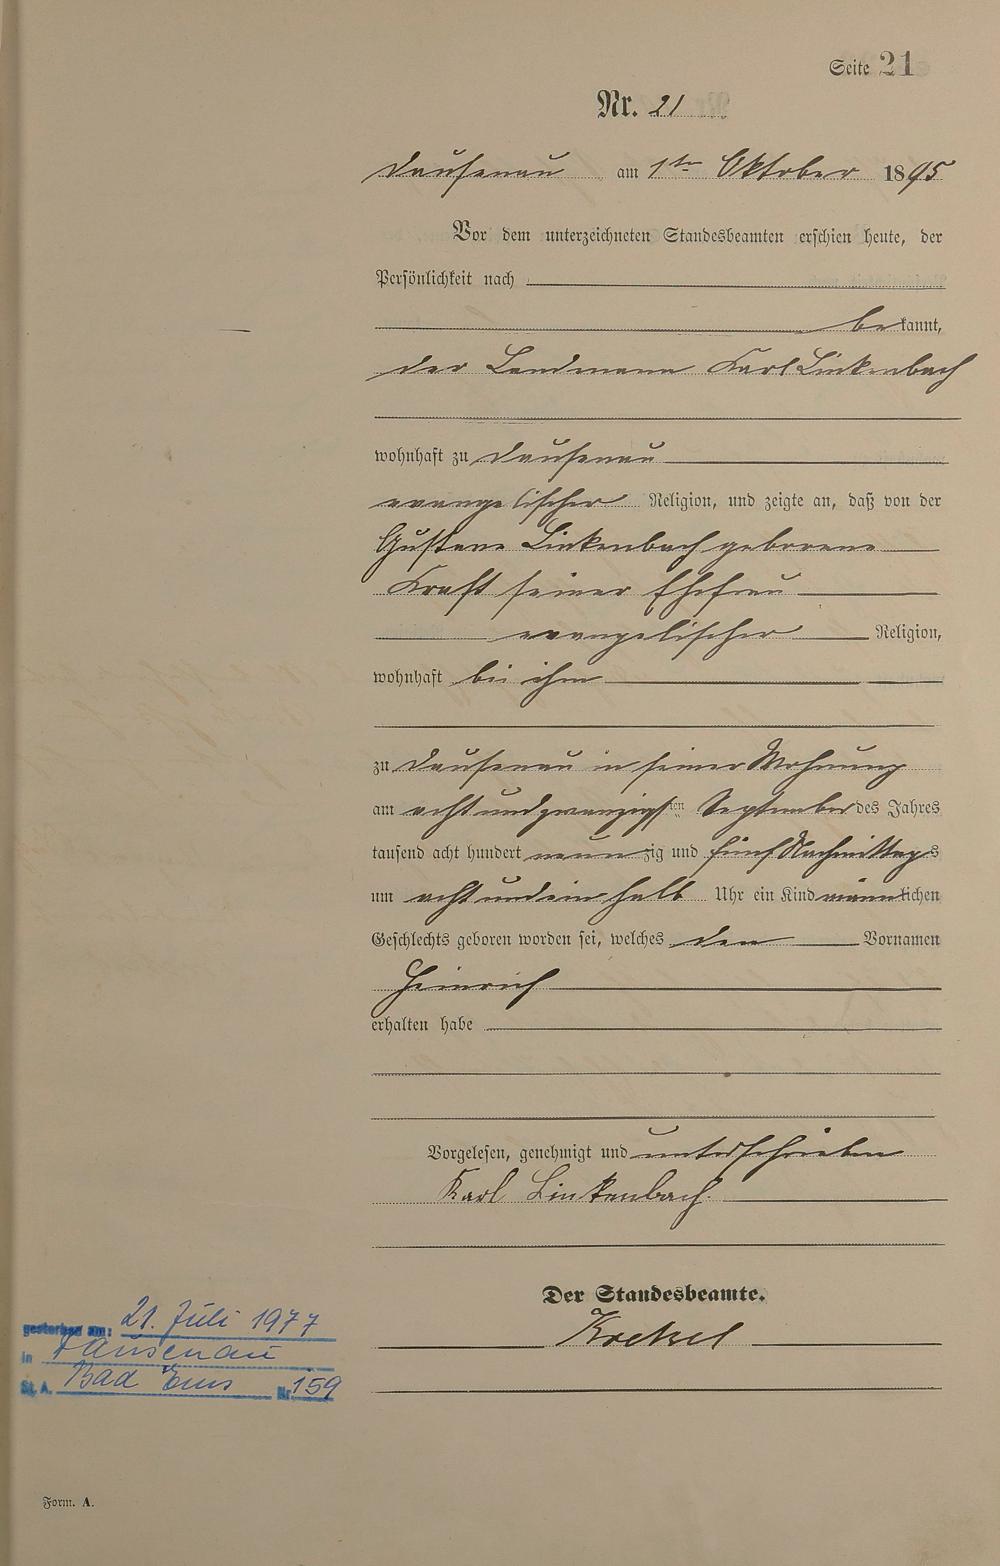 Seite 21
Nr. 21
Dausenau am 1ten Oktober 1895
Vor dem unterzeichneten Standesbeamten erschien heute, der
Persönlichkeit nach
bekannt,
der Landmann Karl Linkenbach
wohnhaft zu Dausenau
evangelischer Religion, und zeigte an, daß von der
Gustane Linkenbach geborene
Kraft seiner Ehefrau
evangelischer Religion,
wohnhaft bei ihm
zu Dausenau in seiner Wohnung
am achtundzwanzigsten September des Jahres
tausend acht hundert neunzig und fünf Nachmittags
um acht und ein halb Uhr ein Kind männlichen
Geschlechts geboren worden sei, welches den Vornamen
Heinrich
erhalten habe
Vorgelesen, genehmigt und unterschrieben
Karl Linkenbach.
Der Standesbeamte.
gestorben am: 21. Juli 1977
in Dausenau
St. A. Bad Ems Nr. 159
Form. A.